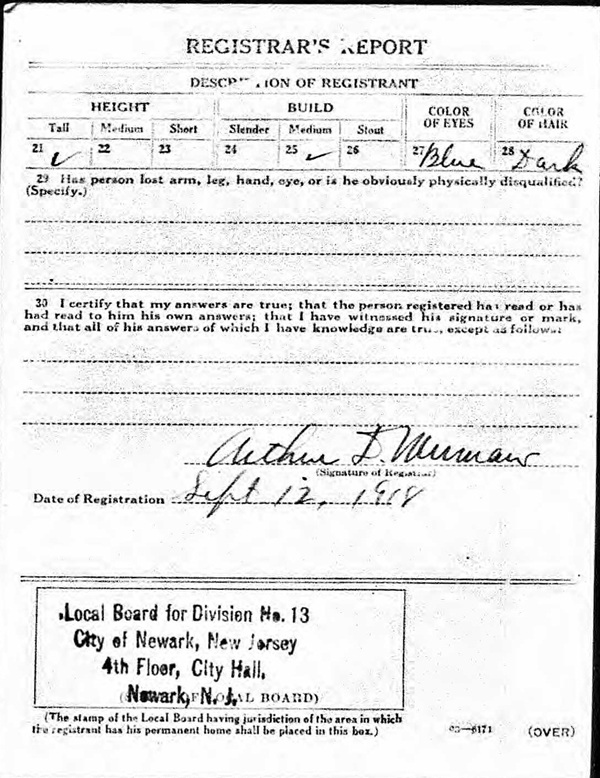 REGISTRAR'S REPORT
DESCRIPTION OF REGISTRANT
HEIGHT BUILD COLOR OF EYES COLOR OF HAIR
Tall Medium Short Slender Medium Stout
21 ✓ 22 23 24 25 ✓ 26 27 Blue 28 Dark
29 Has person lost arm, leg, hand, eye, or is he obviously physically disqualified?
(Specify.)
30 I certify that my answers are true; that the person registered has read or has
had read to him his own answers; that I have witnessed his signature or mark,
and that all of his answers of which I have knowledge are true, except as follows:
Arthur D.
(Signature of Registrar)
Date of Registration Sept 12, 1918
Local Board for Division No. 13
City of Newark, New Jersey
4th Floor, City Hall,
Newark, N. J.
BOARD)
(The stamp of the Local Board having jurisdiction of the area in which
the registrant has his permanent home shall be placed in this box.)
03—6171 (OVER)